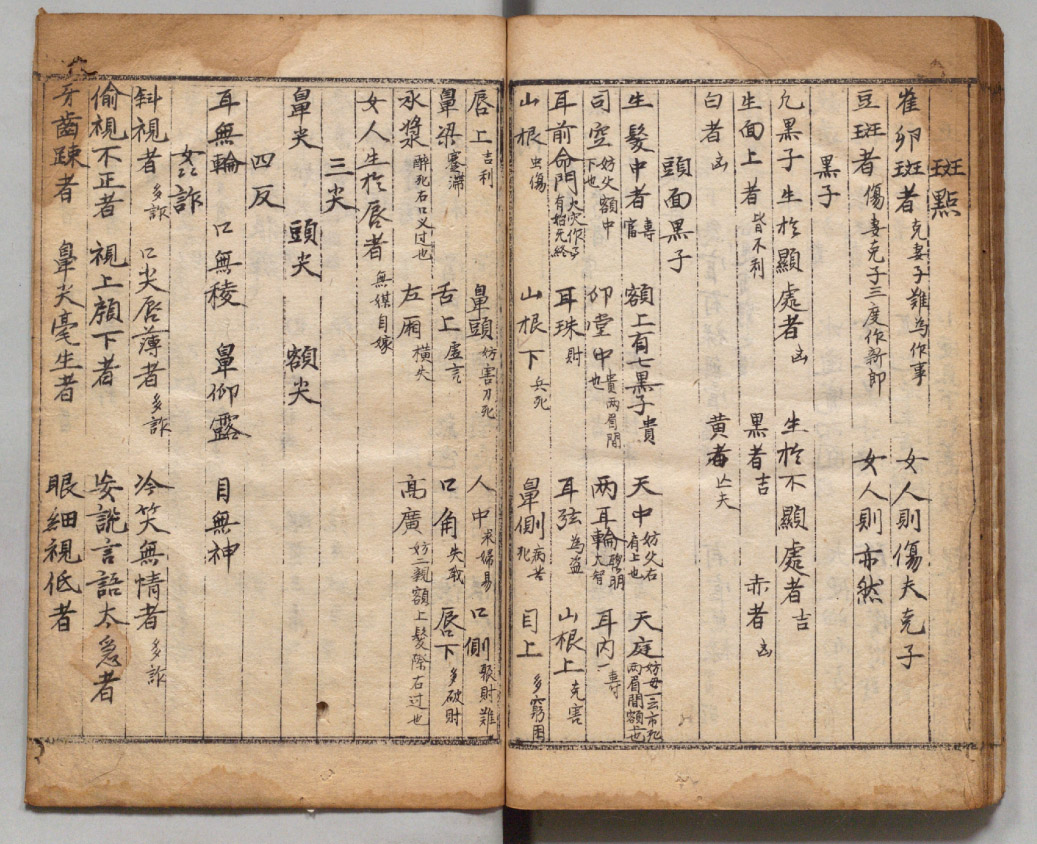 斑點
雀卵斑者 克妻子難為作事 女人則傷夫克子
豆斑者 傷妻克子三度作新郎 女人則亦然
黑子
凢黑子生於顯處者 凶 生於不顯處者 吉
生面上者 皆不利 黑者 吉 赤者 凶
白者 凶 黄者
頭面黑子
生髮中者 富壽 額上有七黑子 貴 天中 妨父右有上也 天庭 妨母一云市死兩眉間額上也
司空 妨父額中下也 印堂中 貴兩眉間也 兩耳輪 聦明大智 耳內 壽
耳前命門 火灾作事有始无終 耳珠 財 耳弦 為盗 山根上 克害
山根 虫傷 山根下 兵死 鼻側 病苦死 目上 多窮困
唇上 吉利 鼻頭 妨害刀死 人中 求婦易 口側 聚財難
鼻梁 蹇滞 舌上 虚言 口角 失職 唇下 多破財
承漿 醉死右口叉过也 左廂 橫失 高廣 妨二親額上髮際右过也
女人生於唇者 無媒自嫁
三尖
鼻尖 頭尖 額尖
四反
耳無輪 口無稜 鼻仰露 目無神
姦詐
斜視者 多詐 口尖唇薄者 多詐 冷笑無情者 多詐
偷視不正者 視上顏下者 妄說言語太急者
牙齒踈者 鼻尖毫生者 眼細視低者